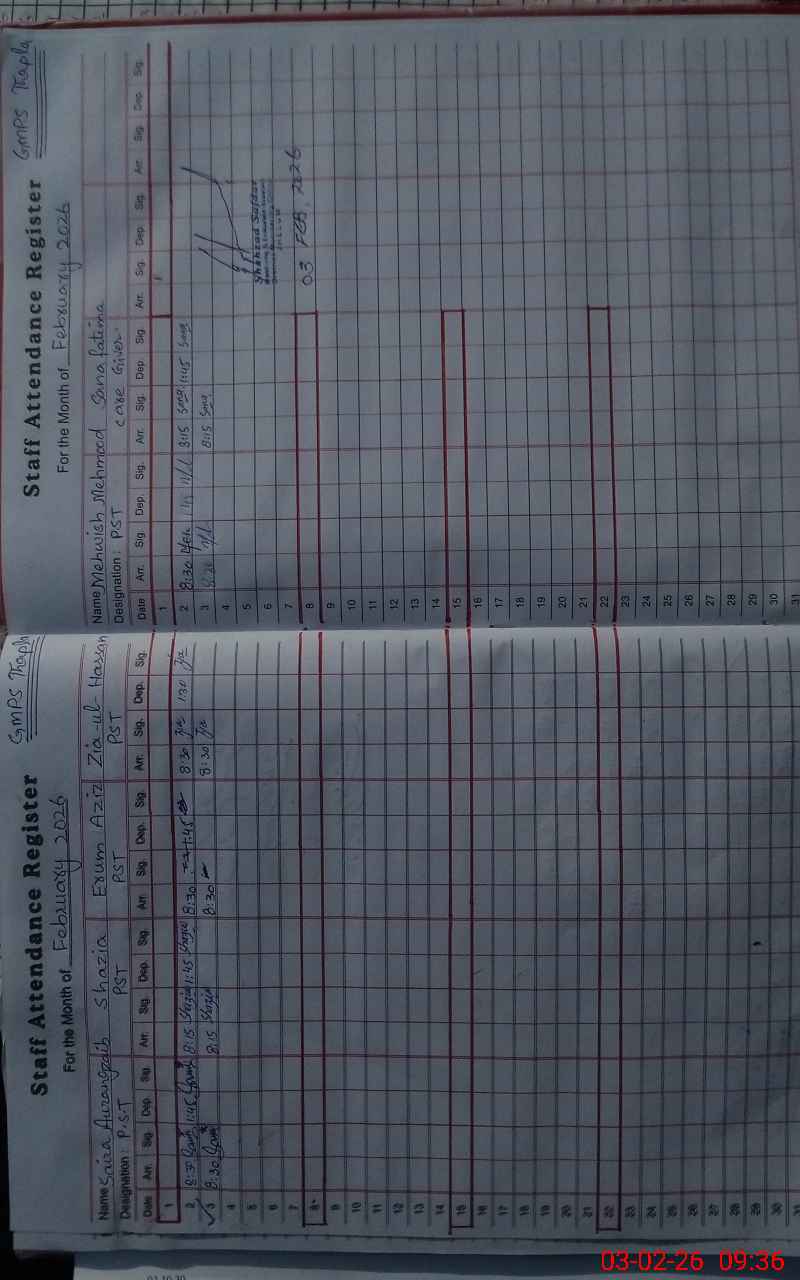 GMPS Thapla
Staff Attendance Register
For the Month of February 2026
Name Saira Aurangzaib Shazia Erum Aziz Zia-ul-Hassan
Designation: P.S.T PST PST PST
Date Arr. Sig. Dep. Sig. Arr. Sig. Dep. Sig. Arr. Sig. Dep. Sig. Arr. Sig. Dep. Sig.
1
2 8:30 1:45 8:15 Shazia 1:45 Shazia 8:30 1:45 8:30 Zia 1:30 Zia
3 8:30 8:15 Shazia 8:30 8:30 Zia
4
5
6
7
8
9
10
11
12
13
14
15
16
17
18
19
20
21
22
23
24
25
26
27
28
29
30
31
GMPS Thapla
Staff Attendance Register
For the Month of February 2026
Name Mehwish Mehmood Sana fatima
Designation: PST Care Giver
Date Arr. Sig. Dep. Sig. Arr. Sig. Dep. Sig. Arr. Sig. Dep. Sig. Arr. Sig. Dep. Sig.
1
2 8:30 8:15 Sana 1:45 Sana
3 8:30 8:15 Sana
4
5
6
7
8
9
10
11
12
13
14
15
16
17
18
19
20
21
22
23
24
25
26
27
28
29
30
31
Shahzad Safdar
JHELUM
03 FEB, 2026
03-02-26 09:36